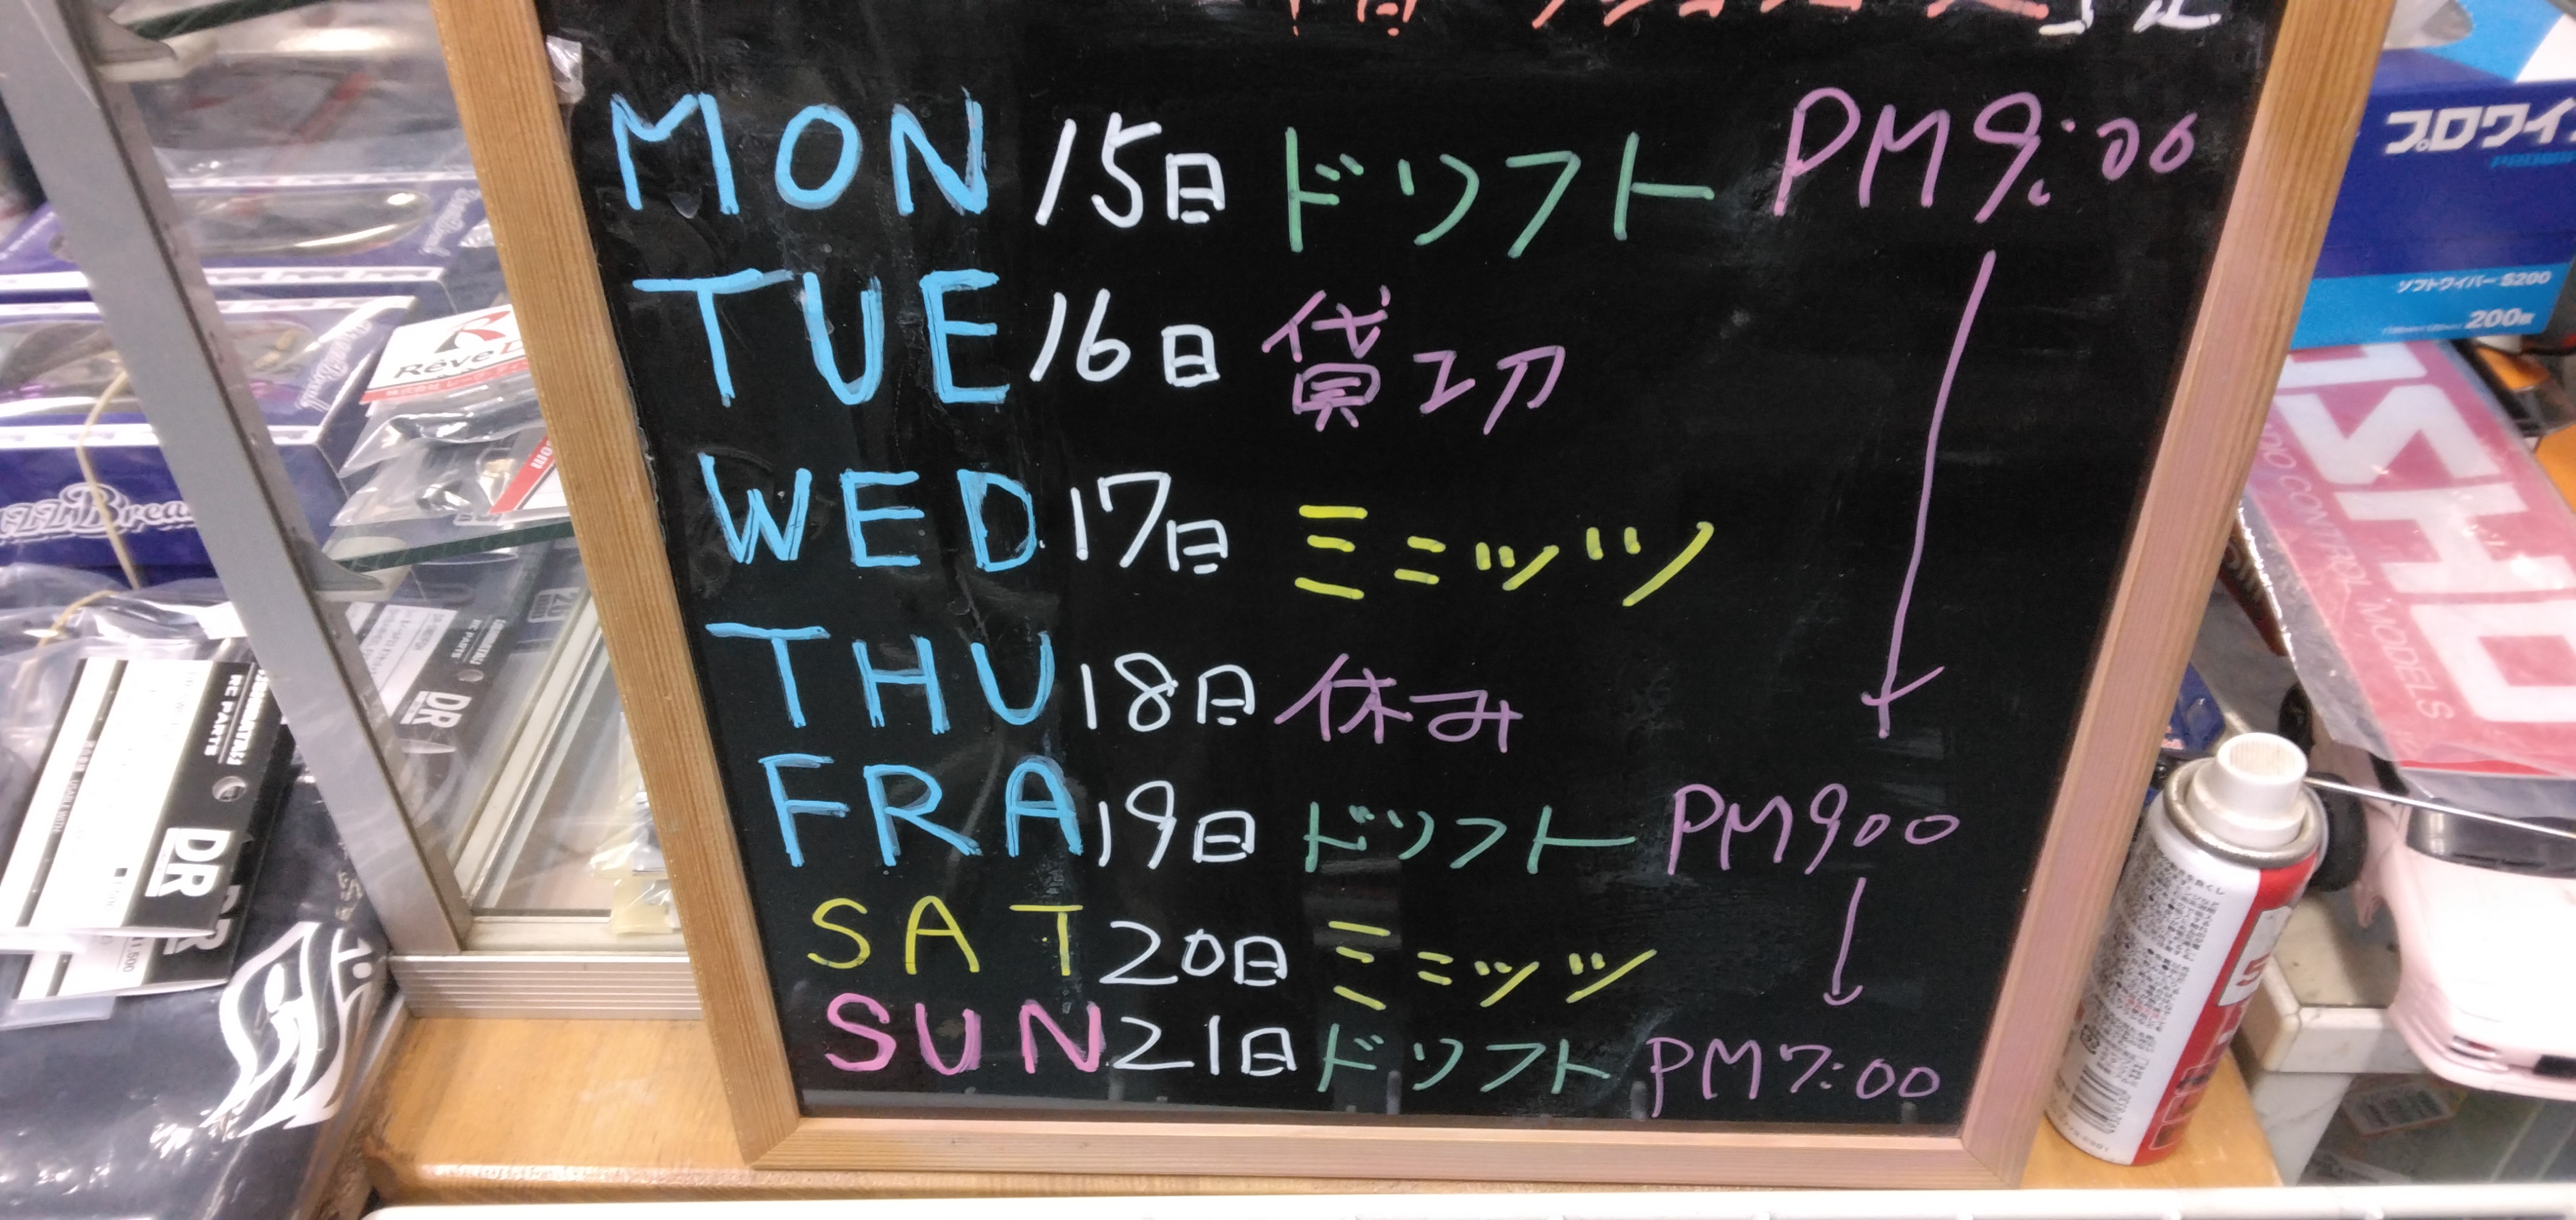 MON 15日 ドリフト PM9:00
TUE 16日 貸切
WED 17日 ミニッツ
THU 18日 休み
FRA 19日 ドリフト PM900
SAT 20日 ミニッツ
SUN 21日 ドリフト PM7:00
プロワイ
ソフトワイパー S200
200
RêveD
DR
RC PARTS
DR
RC PARTS
DR
MODELS